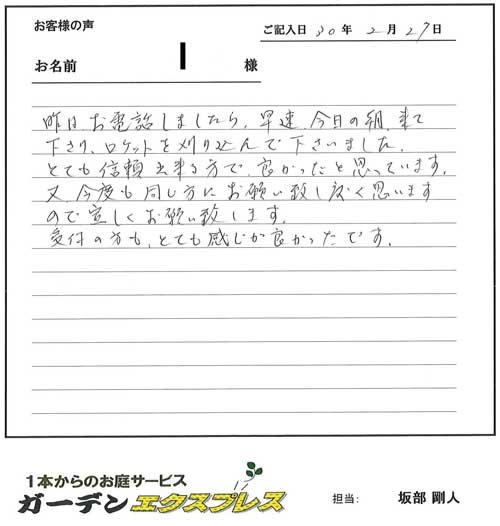 お客様の声
ご記入日 30年 2月 27日
お名前 I 様
昨日、お電話しましたら、早速、今日の朝、来て
下さり、ロケットを刈り込んで下さいました。
とても信頼出来る方で、良かったと思っています。
又、今度も同じ方にお願い致し度く思います
ので宜しくお願い致します。
受付の方も、とても感じが良かったです。
1本からのお庭サービス
ガーデンエクスプレス
担当: 坂部 剛人